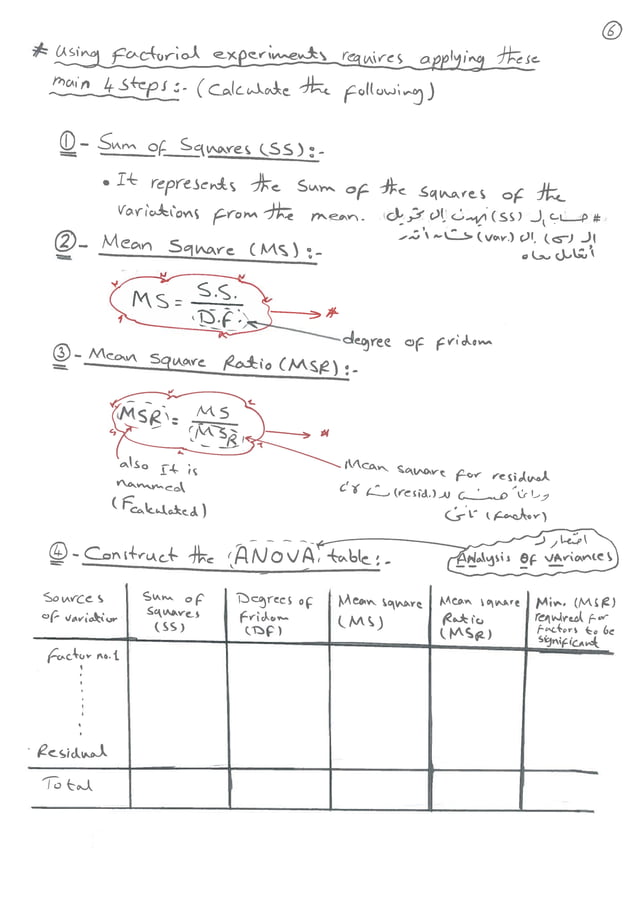 6
* Using factorial experiments requires applying these
main 4 steps:- (Calculate the following)
① - Sum of Squares (SS):-
• It represents the sum of the squares of the
variations from the mean. # حساب الـ (SS)
الـ (var.)
② - Mean Square (MS):-
MS = S.S. / D.F.
degree of fridom
③ - Mean Square Ratio (MSR):-
MSR = MS / MSR
also It is
nammed
(Fcalculated)
Mean square for residual
(resid.)
(factor)
④ - Construct the (ANOVA) table:-
اختصار لـ
ANalysis Of VAriances
Sources
of variation
Sum of
Squares
(SS)
Degrees of
Fridom
(DF)
Mean square
(MS)
Mean square
Ratio
(MSR)
Min. (MSR)
required for
Factors to be
significant
Factor no.1
Residual
Total